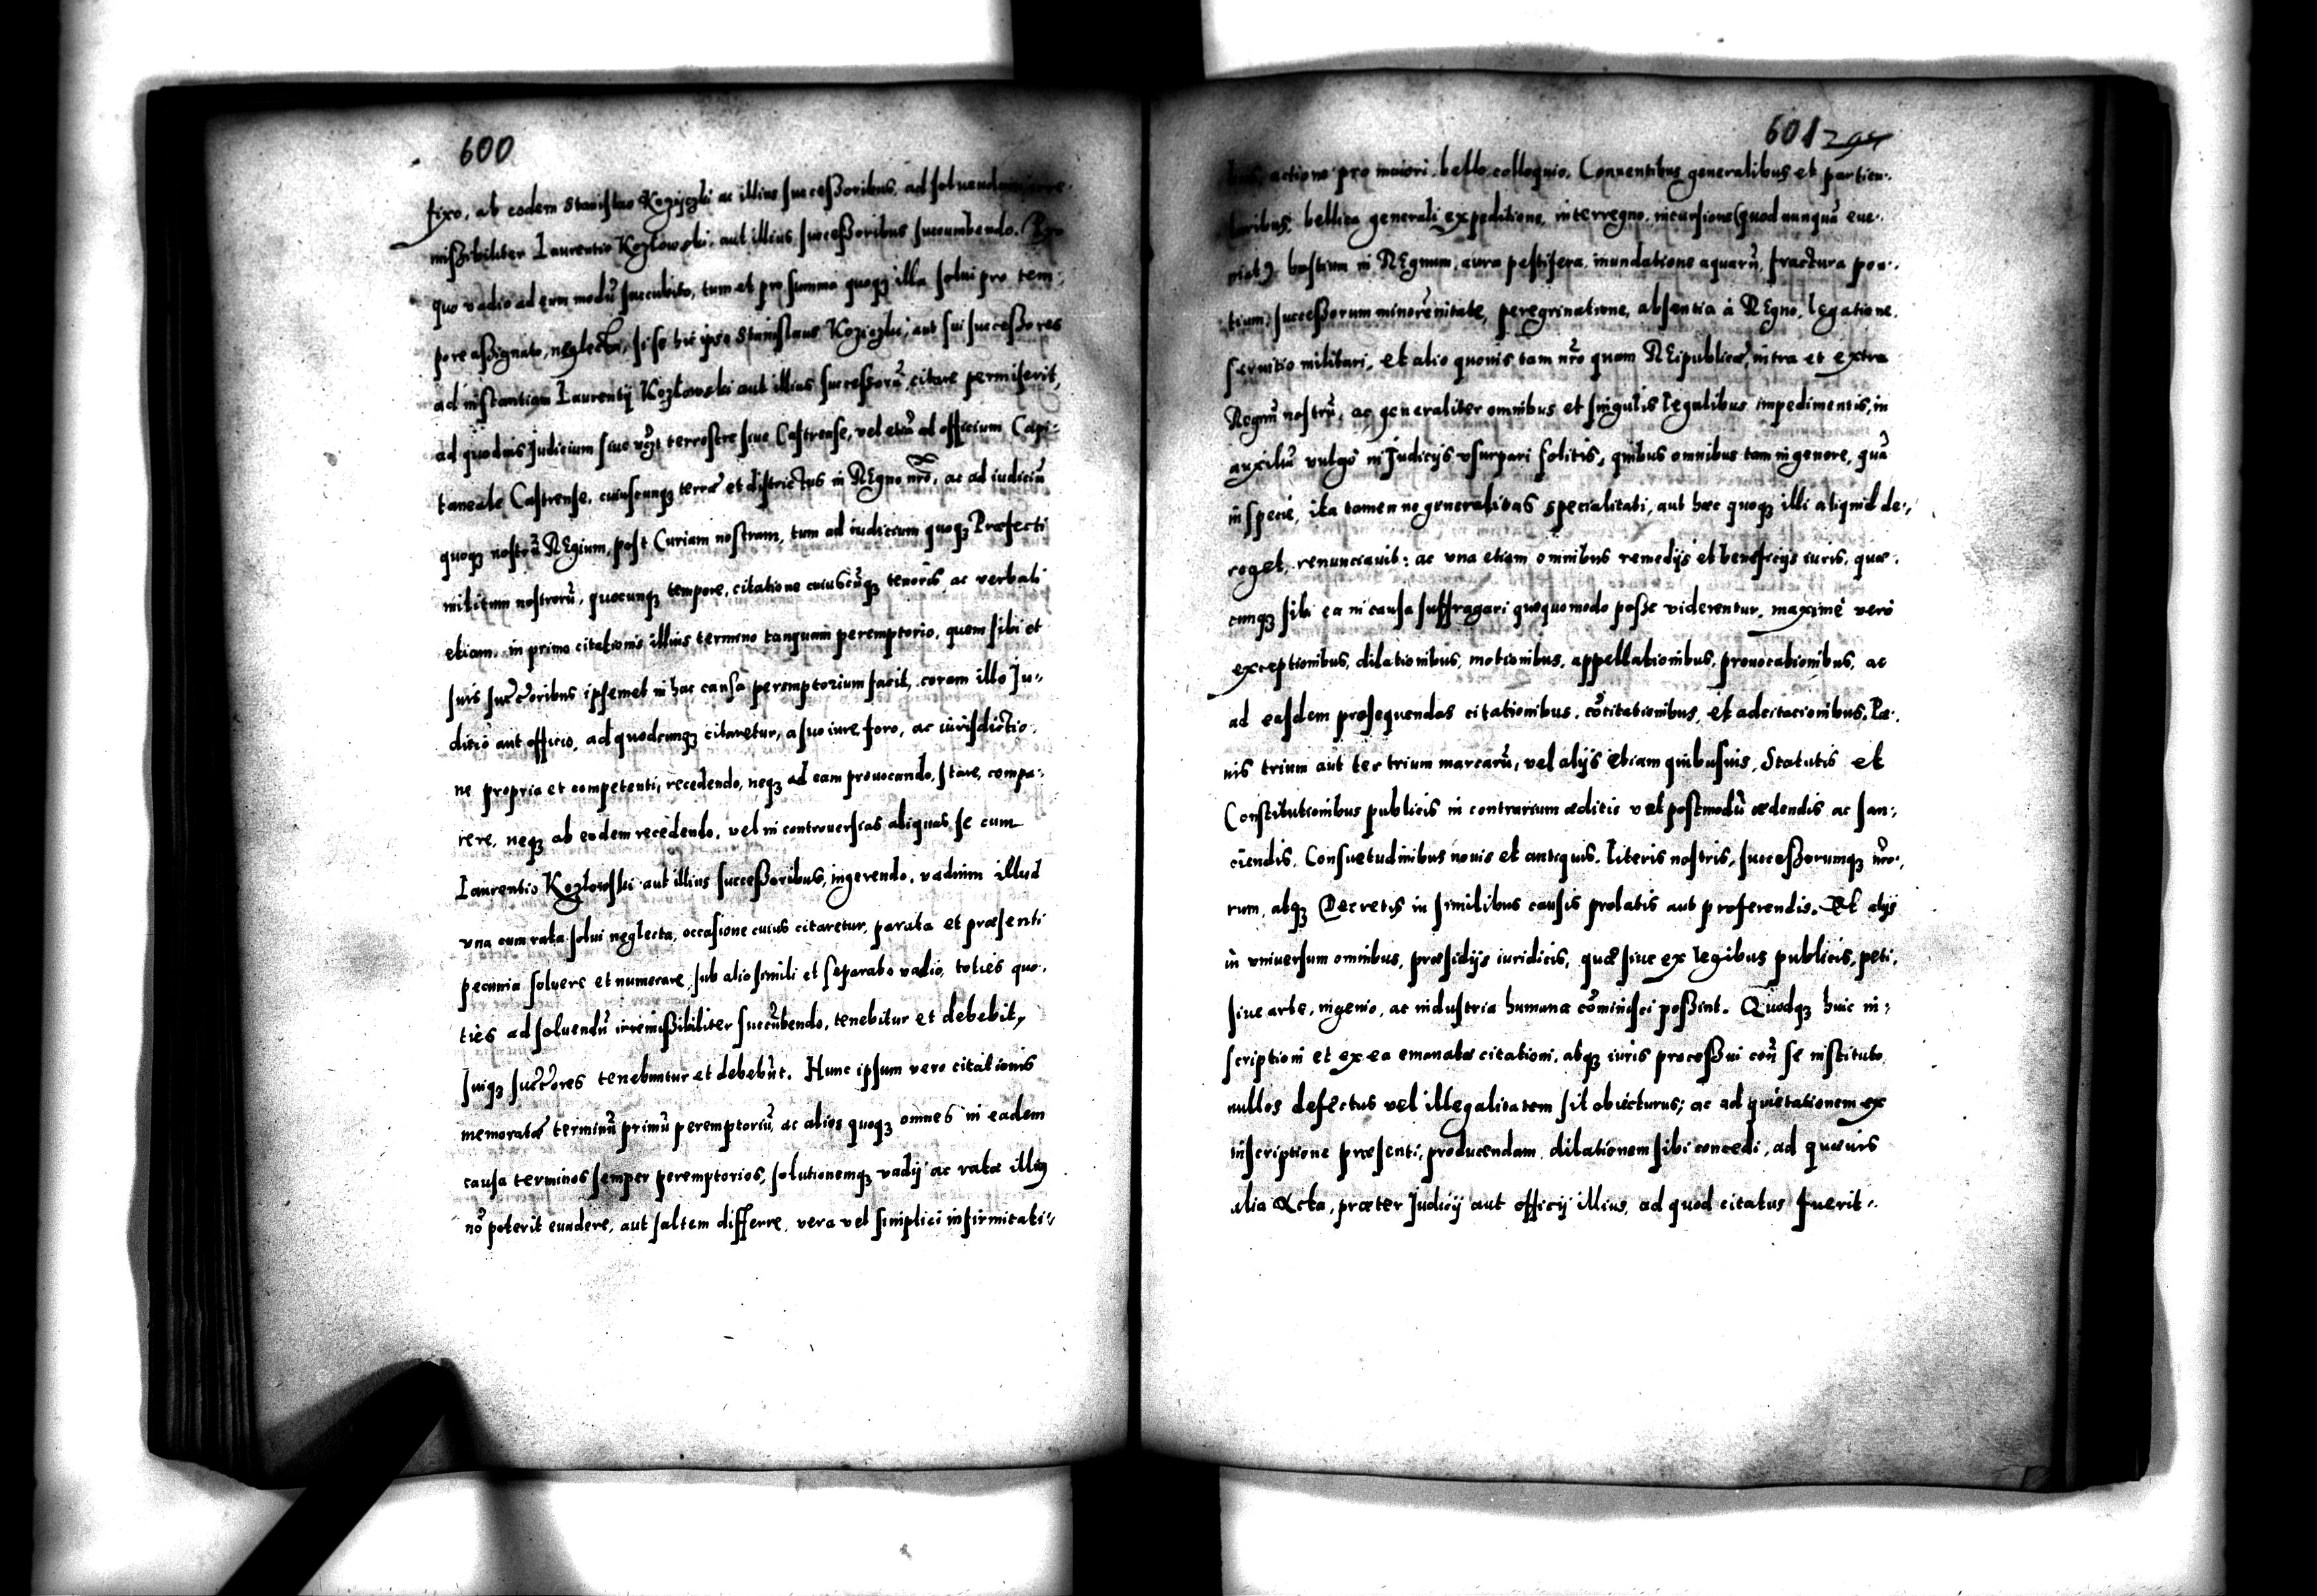 600
fixo, ab eodem Stanislao Kozyczki ac illius successoribus, ad soluendum
mißibiliter Laurentio Kozlowski, aut illius succeßoribus succumbendo. Pro
quo vadio ad eum modū succubito, tum et pro summa quoqꝫ illa solui pro tem:
pore aßignato, neglecta, si se hic ipse Stanislaus Koziczki, aut sui succeßores
ad instantiam Laurentij Kozlowski aut illius successorū, citare permiserit,
ad quoduis Judicium siue terrestre siue Castrense, vel etiā ad officium Capi:
taneale Castrense, cuiuscunqꝫ terræ et districtus in REgno nrō, ac ad iudiciū
quoqꝫ nostrū REgium, post Curiam nostram, tum ad iudicium quoqꝫ Præfecti
militum nostrorū, quocunqꝫ tempore, citatione cuiuscūqꝫ tenoris, ac verbali
etiam. in primo citationis illius termino tanquam peremptorio, quem sibi et
suis succoribus ipsemet in hac causa peremptorium facit, coram illo Ju:
ditio aut officio, ad quodcunqꝫ citaretur, a suo iure foro, ac iurisdictio:
ne propria et competenti, recedendo, neqꝫ ad eam prouocando, stare, compa:
rere, neqꝫ ab eodem recedendo, vel in controuersias aliquas se cum
Laurentio Kozlowski aut illius succeßoribus, ingerendo. vadium illud
vna cum rata solui neglecta, occasione cuius citaretur, parata et præsenti
pecunia soluere et numerare, sub alio simili et separato vadio, toties quo:
ties ad soluendū irremißibiliter succūbendo, tenebitur et debebit,
suiqꝫ succōres tenebuntur et debebūt. Hunc ipsum vero citationis
memoratæ terminū primū peremptoriū, ac alios quoqꝫ omnes in eadem
causa terminos semper peremptorios, solutionemqꝫ vadij ac ratæ illius
nō poterit euadere, aut saltem differre, vera vel simplici infirmitati:
601 295
actione pro maiori. bello. colloquio. Conuentibus generalibus et particu:
laribus, bellica generali expeditione, interregno, incursione (quod nunquā eue:
niat) hostium in REgnum, aura pestifera, inundatione aquarū, fractura pon:
tium, succeßorum minorēnitate, peregrinatione, absentia à REgno, legatione,
seruitio militari, et alio quouis tam nrō quam REipublicæ, intra et extra
Regnū nostrū, ac generaliter omnibus et singulis legalibus impedimentis, in
auxiliū vulgo in Judicijs vsurpari solitis, quibus omnibus tam in genere, quā
in specie, ita tamen ne generalitas specialitati, aut hæc quoqꝫ illi aliquid de:
roget, renunciauit: ac vna etiam omnibus remedijs et beneficijs iuris, quæ:
cunqꝫ sibi ea in causa suffragari quoquomodo poße viderentur, maximè verò
exceptionibus, dilationibus, motionibus, appellationibus, prouocationibus, ac
ad easdem prosequendas citationibus, cōcitationibus, et adcitacionibus. Pæ:
nis trium aut ter trium marcarū, vel alijs etiam quibusuis, Statutis et
Constitutionibus publicis in contrarium æditis vel postmodū ædendis ac san:
ciendis, Consuetudinibus nouis et antiquis, Literis nostris, succeßorumqꝫ nro:
rum, atqꝫ Decretis in similibus causis prolatis aut proferendis. Et alijs
in vniuersum omnibus, præsidijs iuridicis, quæ siue ex legibus publicis, peti,
siue arte, ingenio, ac industria humana cōminisci poßint. Quodqꝫ huic in:
scriptioni et ex ea emanatæ citationi, atqꝫ iuris proceßui con̄ se instituto,
nullos defectus vel illegalitatem sit obiecturus; ac ad quietationem ex
inscriptione præsenti, producendam dilationem sibi concedi, ad quæuis
alia Acta, præter Judicij aut officij illius, ad quod citatus fuerit: